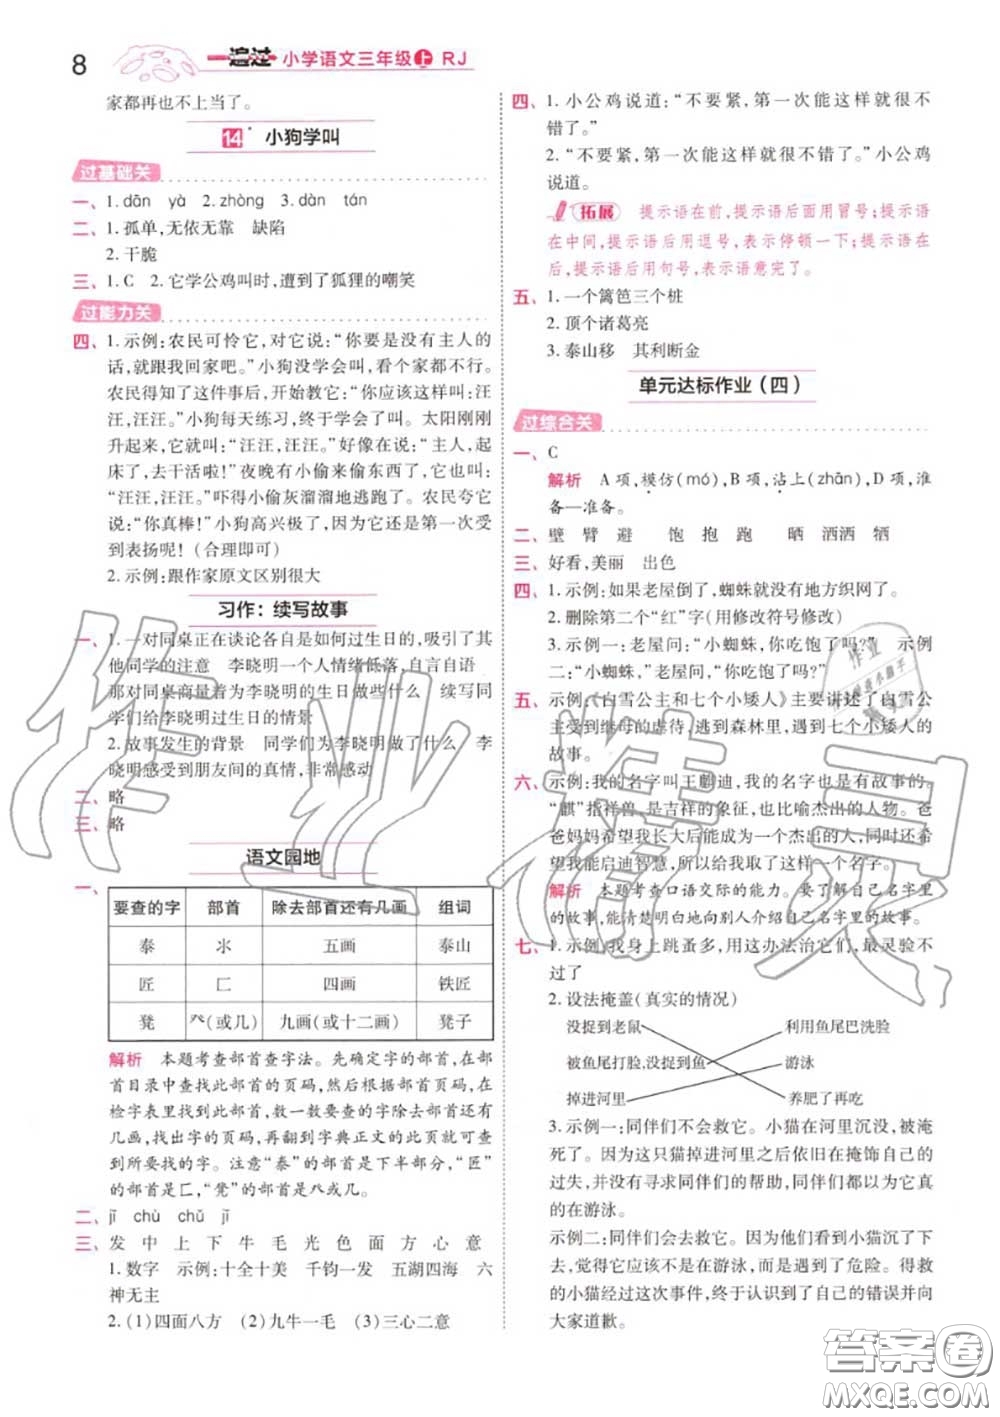 8
一遍过 小学语文三年级 上 RJ
家都再也不上当了。
14* 小狗学叫
过基础关
一、1.dān yà 2.zhòng 3.dàn tán
二、1.孤单,无依无靠 缺陷
2.干脆
三、1.C 2.它学公鸡叫时,遭到了狐狸的嘲笑
过能力关
四、1.示例:农民可怜它,对它说:“你要是没有主人的
话,就跟我回家吧。”小狗没学会叫,看个家都不行。
农民得知了这件事后,开始教它:“你应该这样叫:汪
汪,汪汪。”小狗每天练习,终于学会了叫。太阳刚刚
升起来,它就叫:“汪汪,汪汪。”好像在说:“主人,起
床了,去干活啦!”夜晚有小偷来偷东西了,它也叫:
“汪汪,汪汪。”吓得小偷灰溜溜地逃跑了。农民夸它
说:“你真棒!”小狗高兴极了,因为它还是第一次受
到表扬呢!(合理即可)
2.示例:跟作家原文区别很大
习作:续写故事
一、1.一对同桌正在谈论各自是如何过生日的,吸引了其
他同学的注意 李晓明一个人情绪低落,自言自语
那对同桌商量着为李晓明的生日做些什么 续写同
学们给李晓明过生日的情景
2.故事发生的背景 同学们为李晓明做了什么 李
晓明感受到朋友间的真情,非常感动
二、略
三、略
语文园地
一、
要查的字 部首 除去部首还有几画 组词
泰 氺 五画 泰山
匠 匚 四画 铁匠
凳 癶(或几) 九画(或十二画) 凳子
解析 本题考查部首查字法。先确定字的部首,在部
首目录中查找此部首的页码,然后根据页码,在
检字表里找到此部首,数一数要查的字除去部首还有
几画,找出字的页码,再翻到字典正文的此页就可查
到要找的字。注意“泰”的部首是下半部分,“匠”
的部首是匚,“凳”的部首是癶或几。
二、jǐ chù chǔ jī
三、发 中 上 下 牛 毛 光 色 面 方 心 意
1.数字 示例:十全十美 千钧一发 五湖四海 六
神无主
2.(1)四面八方 (2)九牛一毛 (3)三心二意
四、1.小公鸡说道:“不要紧,第一次能这样就很不
错了。”
2.“不要紧,第一次能这样就很不错了。”小公鸡
说道。
拓展 提示语在前,提示语后面用冒号;提示语
在中间,提示语后用逗号,表示停顿一下;提示语在
后,提示语后用句号,表示语意完了。
五、1.一个篱笆三个桩
2.顶个诸葛亮
3.泰山移 其利断金
单元达标作业(四)
过综合关
一、C
解析 A项,模仿(mó),B项,沾上(zhān),D项,准
备—准备。
二、壁 臂 避 饱 抱 跑 晒 洒 牺
三、好看,美丽 出色
四、1.示例:如果老屋倒了,蜘蛛就没有地方织网了。
2.删除第二个“红”字(用修改符号修改)
3.示例一:老屋问:“小蜘蛛,你吃饱了吗?” 示例
二:“小蜘蛛,”老屋问,“你吃饱了吗?”
五、示例:《白雪公主和七个小矮人》主要讲述了白雪公
主受到继母的虐待,逃到森林里,遇到七个小矮人的
故事。
六、示例:我的名字叫王麒迪,我的名字也是有故事的。
“麒”指祥兽,是吉祥的象征,也比喻杰出的人物。爸
爸妈妈希望我长大后能成为一个杰出的人,同时还希
望我能启迪智慧,所以给我取了这样一个名字。
解析 本题考查口语交际的能力。要了解自己名字里
的故事,能清楚明白地向别人介绍自己名字的故事。
七、1.示例:我身上跳蚤多,用这办法治它们,最灵验不
过了
2.设法掩盖(真实的情况)
没捉到老鼠 利用鱼尾巴洗脸
被鱼尾打脸,没捉到鱼 游泳
掉进河里 养肥了再吃
3.示例一:同伴们不会去救它。小猫在河里沉没,被淹
死了。因为这只猫掉进河里之后依旧在掩饰自己的
过失,并没有寻求同伴们的帮助,同伴们还以为它真
的在游泳。
示例二:同伴们去救它了。同伴们看到小猫沉了下
去,想到它应该不是在游泳,而是遇到了危险。得救
的小猫经过这次事件,终于认识到了自己的错误并向
大家道歉。
作业精灵
答案圈
MXQE.COM